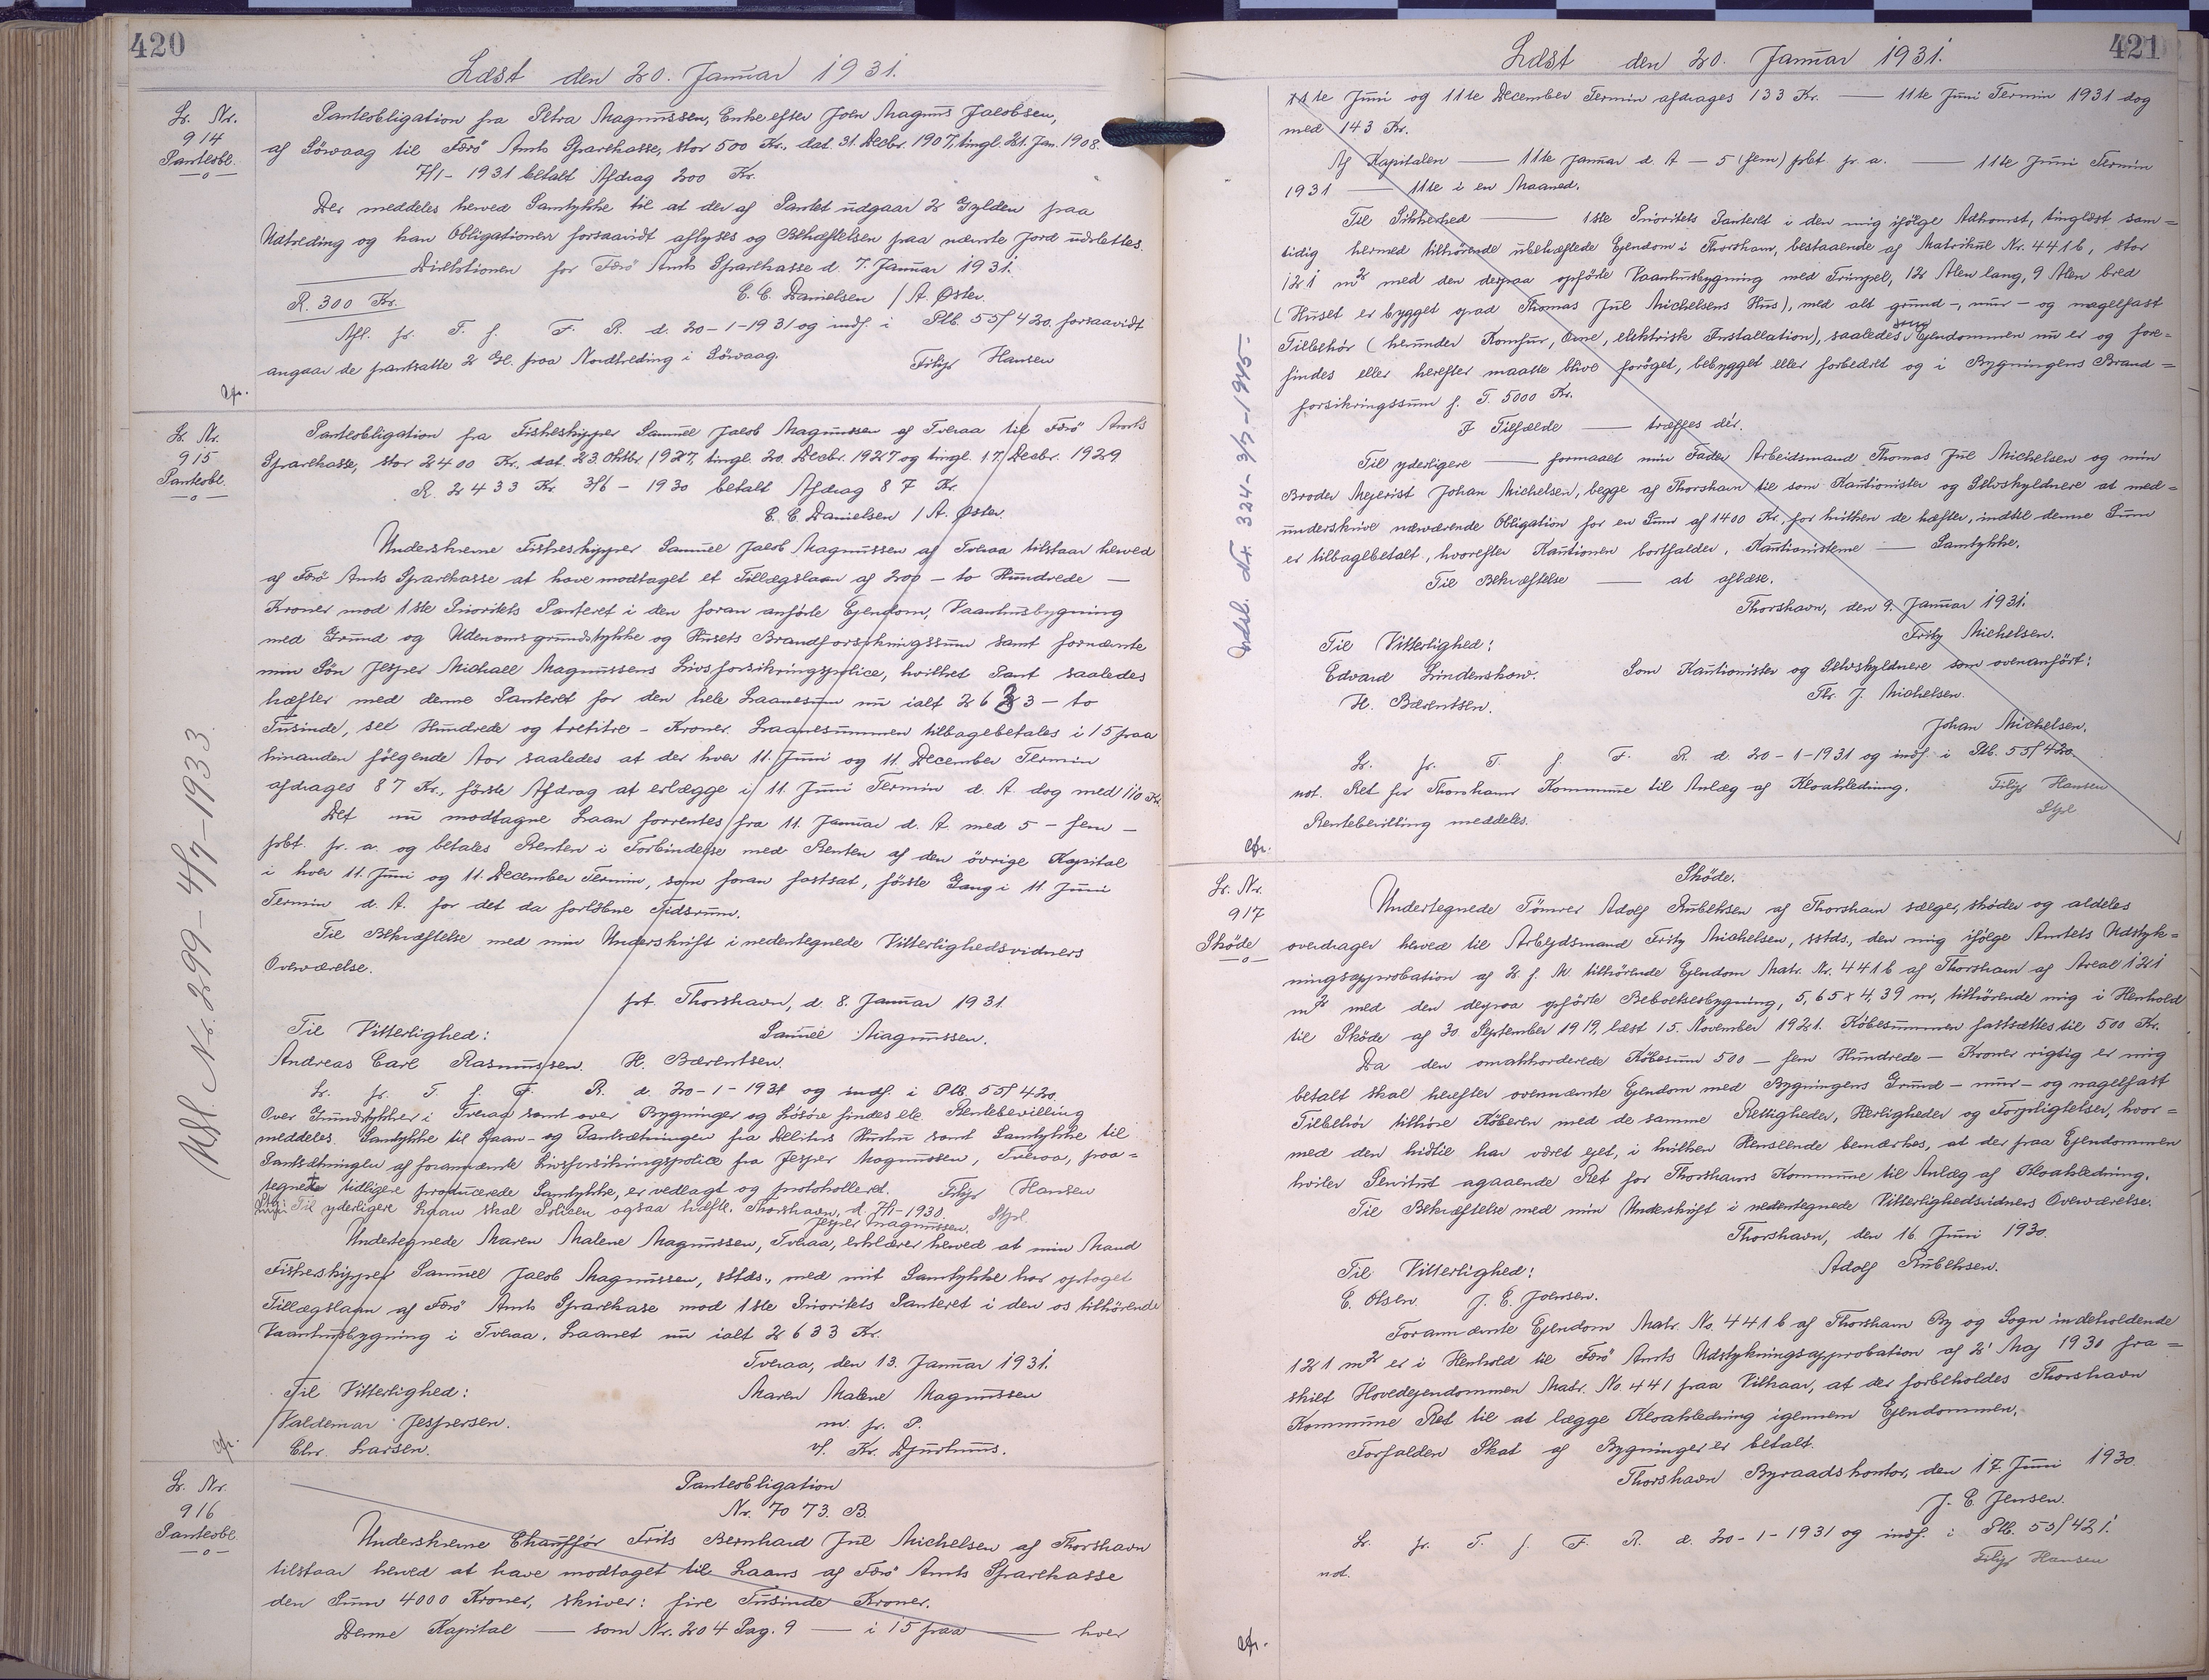 420
Læst den 20. Januar 1931.
Lr. Nr.
914
Panteobl.
Panteobligation fra Petra Magnussen, Enke efter Joen Magnus Jacobsen,
af Sörvaag til Færö Amts Sparekasse, stor 500 Kr., dat. 31. Decbr. 1907, tingl. 21. Jan. 1908.
7/1 - 1931 betalt Afdrag 200 Kr.
Der meddeles herved Samtykke til at der af Pantet udgaar 2 Gylden paa
Udtreding og kan Obligationen forsaavidt aflyses og Behæftelsen paa nævnte Jord udslettes.
Direktionen for Færö Amts Sparekasse d. 7. Januar 1931.
C. C. Danielsen / A. Øster.
R. 300 Kr.
Afl. fr. T. f. F. R. d. 20-1-1931 og indf. i Ptb. 55/420. forsaavidt
angaar de pantsatte 2 Gl. paa Nordtreding i Sörvaag.
Filip Hansen
Cfr.
Lr. Nr.
915
Panteobl.
Panteobligation fra Fiskeskipper Samuel Jacob Magnussen af Tveraa til Færö Amts
Sparekasse, stor 2400 Kr., dat. 23. Oktbr. 1927, tingl. 20. Decbr. 1927 og tingl. 17. Decbr. 1929
R. 2433 Kr. 3/6 - 1930 betalt Afdrag 87 Kr.
C. C. Danielsen / A. Øster.
Underskrevne Fiskeskipper Samuel Jacob Magnussen af Tveraa tilstaar herved
af Færö Amts Sparekasse at have modtaget et Tillægslaan af 200 — to Hundrede —
Kroner mod 1ste Prioritets Panteret i den foran anförte Ejendom, Vaanhusbygning
med Grund og Udenomsgrundstykke og Husets Brandforsikringssum samt fornævnte
min Sön Jesper Michael Magnussens Livsforsikringspolice, hvilket Pant saaledes
hæfter med denne Panteret for den hele Laanesum nu ialt 2633 — to
Tusinde, sex Hundrede og tretitre — Kroner. Laanesummen tilbagebetales i 15 paa
hinanden fölgende Aar saaledes at der hver 11. Juni og 11. December Termin
afdrages 87 Kr., förste Afdrag at erlægge i 11. Juni Termin d. A. dog med 110 Kr.
Det nu modtagne Laan forrentes fra 11. Januar d. A. med 5 — fem —
pct. pr. a. og betales Renten i Forbindelse med Renten af den övrige Kapital
i hver 11. Juni og 11. December Termin, som foran fastsat, förste Gang i 11. Juni
Termin d. A. for det da forlöbne Tidsrum.
Til Bekræftelse med min Underskrift i nedentegnede Vitterlighedsvidners
Overværelse.
pt. Thorshavn, d. 8. Januar 1931.
Til Vitterlighed:
Samuel Magnussen.
Andreas Carl Rasmussen. H. Bærentsen.
Lr. fr. T. f. F. R. d. 20-1-1931 og indf. i Ptb. 55/420.
Over Grundstykker i Tveraa samt over Bygninger og Lösöre findes ele. Rentebevilling
meddeles. Samtykke til Laan- og Pantsætningen fra Debitors Hustru samt Samtykke til
Pantsætningen af forannævnte Livsforsikringspolice fra Jesper Magnussen, Tveraa, paa=
tegnet tidligere producerede Samtykke, er vedlagt og protokolleret. Filip Hansen
Til yderligere Laan skal Policen ogsaa hæfte. Thorshavn, d. 7/1-1930. Stpl.
Jesper Magnussen.
Undertegnede Maren Malene Magnussen, Tveraa, erklærer herved at min Mand
Fiskeskipper Samuel Jacob Magnussen, sstds., med mit Samtykke har optaget
Tillægslaan af Færö Amts Sparekasse mod 1ste Prioritets Panteret i den os tilhörende
Vaanhusbygning i Tveraa. Laanet nu ialt 2633 Kr.
Tveraa, den 13. Januar 1931.
Til Vitterlighed:
Maren Malene Magnussen
Valdemar Jespersen.
m. f. P.
Chr. Larsen.
v/. Kr. Djurhuus.
Cfr.
Udsl. Nr. 299 - 4/7 - 1933
Lr. Nr.
916
Panteobl.
Panteobligation
Nr. 7073. B.
Underskrevne Chauffør Frits Bernhard Jul Michelsen af Thorshavn
tilstaar herved at have modtaget til Laans af Færö Amts Sparekasse
den Sum 4000 Kroner, skriver: fire Tusinde Kroner.
Denne Kapital — som Nr. 204 Pag. 9 — i 15 paa — hver
421
Læst den 20. Januar 1931.
11te Juni og 11te December Termin afdrages 133 Kr. — 11te Juni Termin 1931 dog
med 143 Kr.
Af Kapitalen — 11te Januar d. A — 5 (fem) pct. pr. a. — 11te Juni Termin
1931 — 11te i en Maaned.
Til Sikkerhed — 1ste Prioritets Panteret i den mig ifölge Adkomst, tinglæst sam=
tidig hermed tilhörende ubehæftede Ejendom i Thorshavn, bestaaende af Matrikul Nr. 441b, stor
121 m² med den derpaa opförte Vaanhusbygning med Trimpel, 12 Alen lang, 9 Alen bred
(Huset er bygget opad Thomas Jul Michelsens Hus), med alt grund-, mur- og nagelfast
Tilbehör (herunder Komfur, Ovne, elektrisk Installation), saaledes som Ejendommen nu er og fore=
findes eller herefter maatte blive foröget, bebygget eller forbedret og i Bygningens Brand=
forsikringssum p. T. 5000 Kr.
I Tilfælde — træffes dér.
Til yderligere — formaaet min Fader Arbeidsmand Thomas Jul Michelsen og min
Broder Mejerist Johan Michelsen, begge af Thorshavn til som Kautionister og Selvskyldnere at med=
underskrive nærværende Obligation for en Sum af 1400 Kr., for hvilken de hæfter, indtil denne Sum
er tilbagebetalt, hvorefter Kautionen bortfalder. Kautionisterne — Samtykke.
Til Bekræftelse — at aflæse.
Thorshavn, den 9. Januar 1931.
Fritz Michelsen.
Til Vitterlighed:
Edvard Lindenskow.
Som Kautionister og Selvskyldnere som ovenanfört:
H. Bærentsen.
Th. J. Michelsen.
Johan Michelsen.
Lr. fr. T. f. F. R. d. 20-1-1931 og indf. i Ptb. 55/420.
not. Ret for Thorshavns Kommune til Anlæg af Kloakledning.
Filip Hansen
Rentebevilling meddeles.
Stpl
Cfr.
Udsl. Nr. 324 - 3/7 - 1945 -
Lr. Nr.
917
Skøde
Skøde.
Undertegnede Tömrer Adolf Rubeksen af Thorshavn sælger, sköder og aldeles
overdrager herved til Arbejdsmand Fritz Michelsen, sstds., den mig ifölge Amtets Udstyk=
ningsapprobation af 2. f. M. tilhörende Ejendom Matr. Nr. 441b af Thorshavn af Areal 121
m² med den derpaa opförte Beboelsesbygning, 5,65 x 4,39 m, tilhörende mig i Henhold
til Sköde af 30. September 1919, læst 15. November 1921. Köbesummen fastsættes til 500 Kr.
Da den omakkorderede Köbesum 500 — fem Hundrede — Kroner rigtig er mig
betalt skal herefter ovennævnte Ejendom med Bygningens Grund- mur- og nagelfast
Tilbehör tilhöre Köberen med de samme Rettigheder, Herligheder og Forpligtelser, hvor=
med den hidtil har været ejet, i hvilken Henseende bemærkes, at der paa Ejendommen
hviler Servitut agaaende Ret for Thorshavns Kommune til Anlæg af Kloakledning.
Til Bekræftelse med min Underskrift i nedentegnede Vitterlighedsvidners Overværelse.
Thorshavn, den 16. Juni 1930.
Til Vitterlighed:
Adolf Rubeksen.
E. Olsen. J. E. Joensen.
Forannævnte Ejendom Matr. No. 441b af Thorshavn By og Sogn indeholdende
121 m² er i Henhold til Færö Amts Udstykningsapprobation af 2' Maj 1930 fra=
skilt Hovedejendommen Matr. No. 441 paa Vilkaar, at der forbeholdes Thorshavn
Kommune Ret til at lægge Kloakledning igennem Ejendommen.
Forfalden Skat af Bygninger er betalt.
Thorshavn Byraadskontor, den 17. Juni 1930.
J. C. Jensen.
Lr. fr. T. f. F. R. d. 20-1-1931 og indf. i Ptb. 55/421.
not.
Filip Hansen
Cfr.